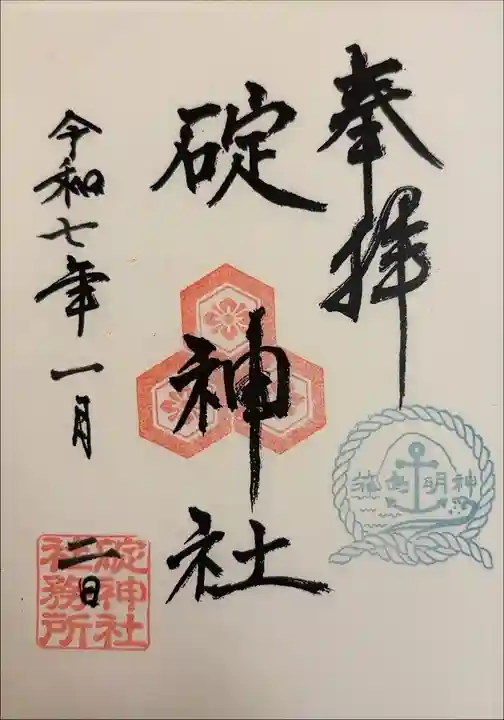 奉拝
碇神社
令和七年一月二日
箱島明神
碇神社
社務所